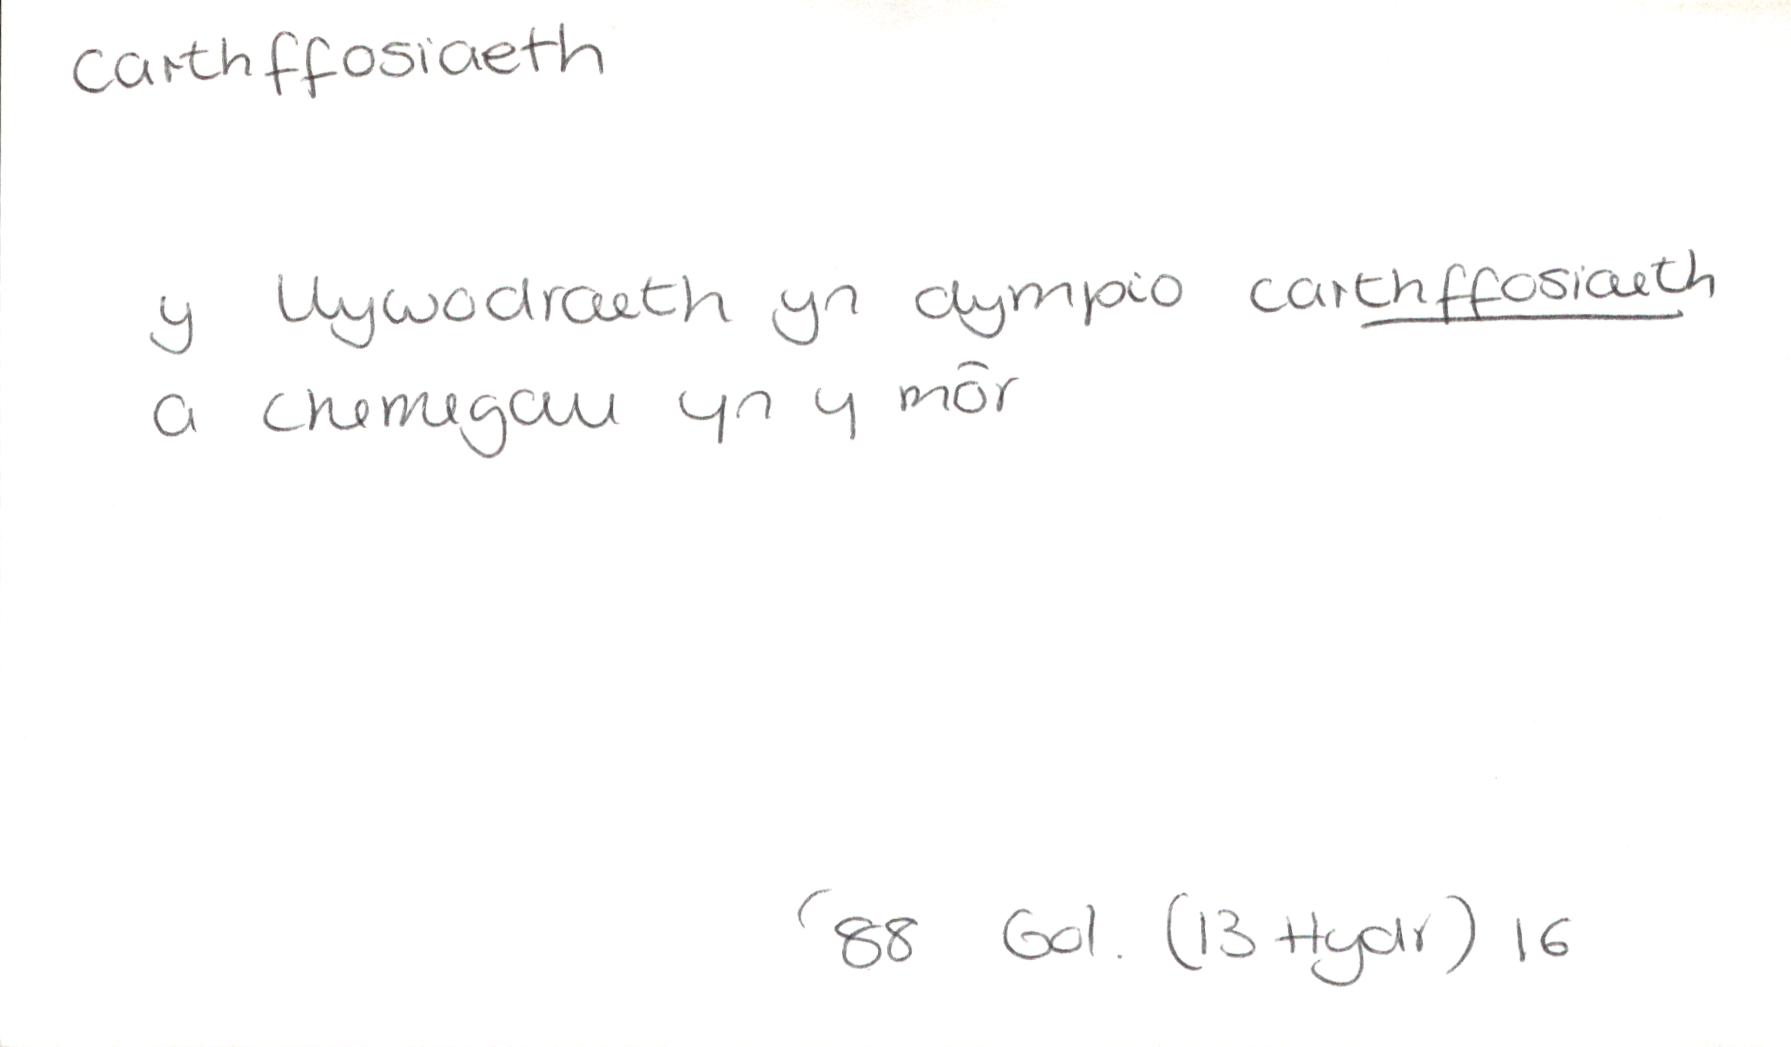 carthffosiaeth
y llywodraeth yn dympio carthffosiaeth
a chemegau yn y môr
'88 Gol. (13 Hydr) 16